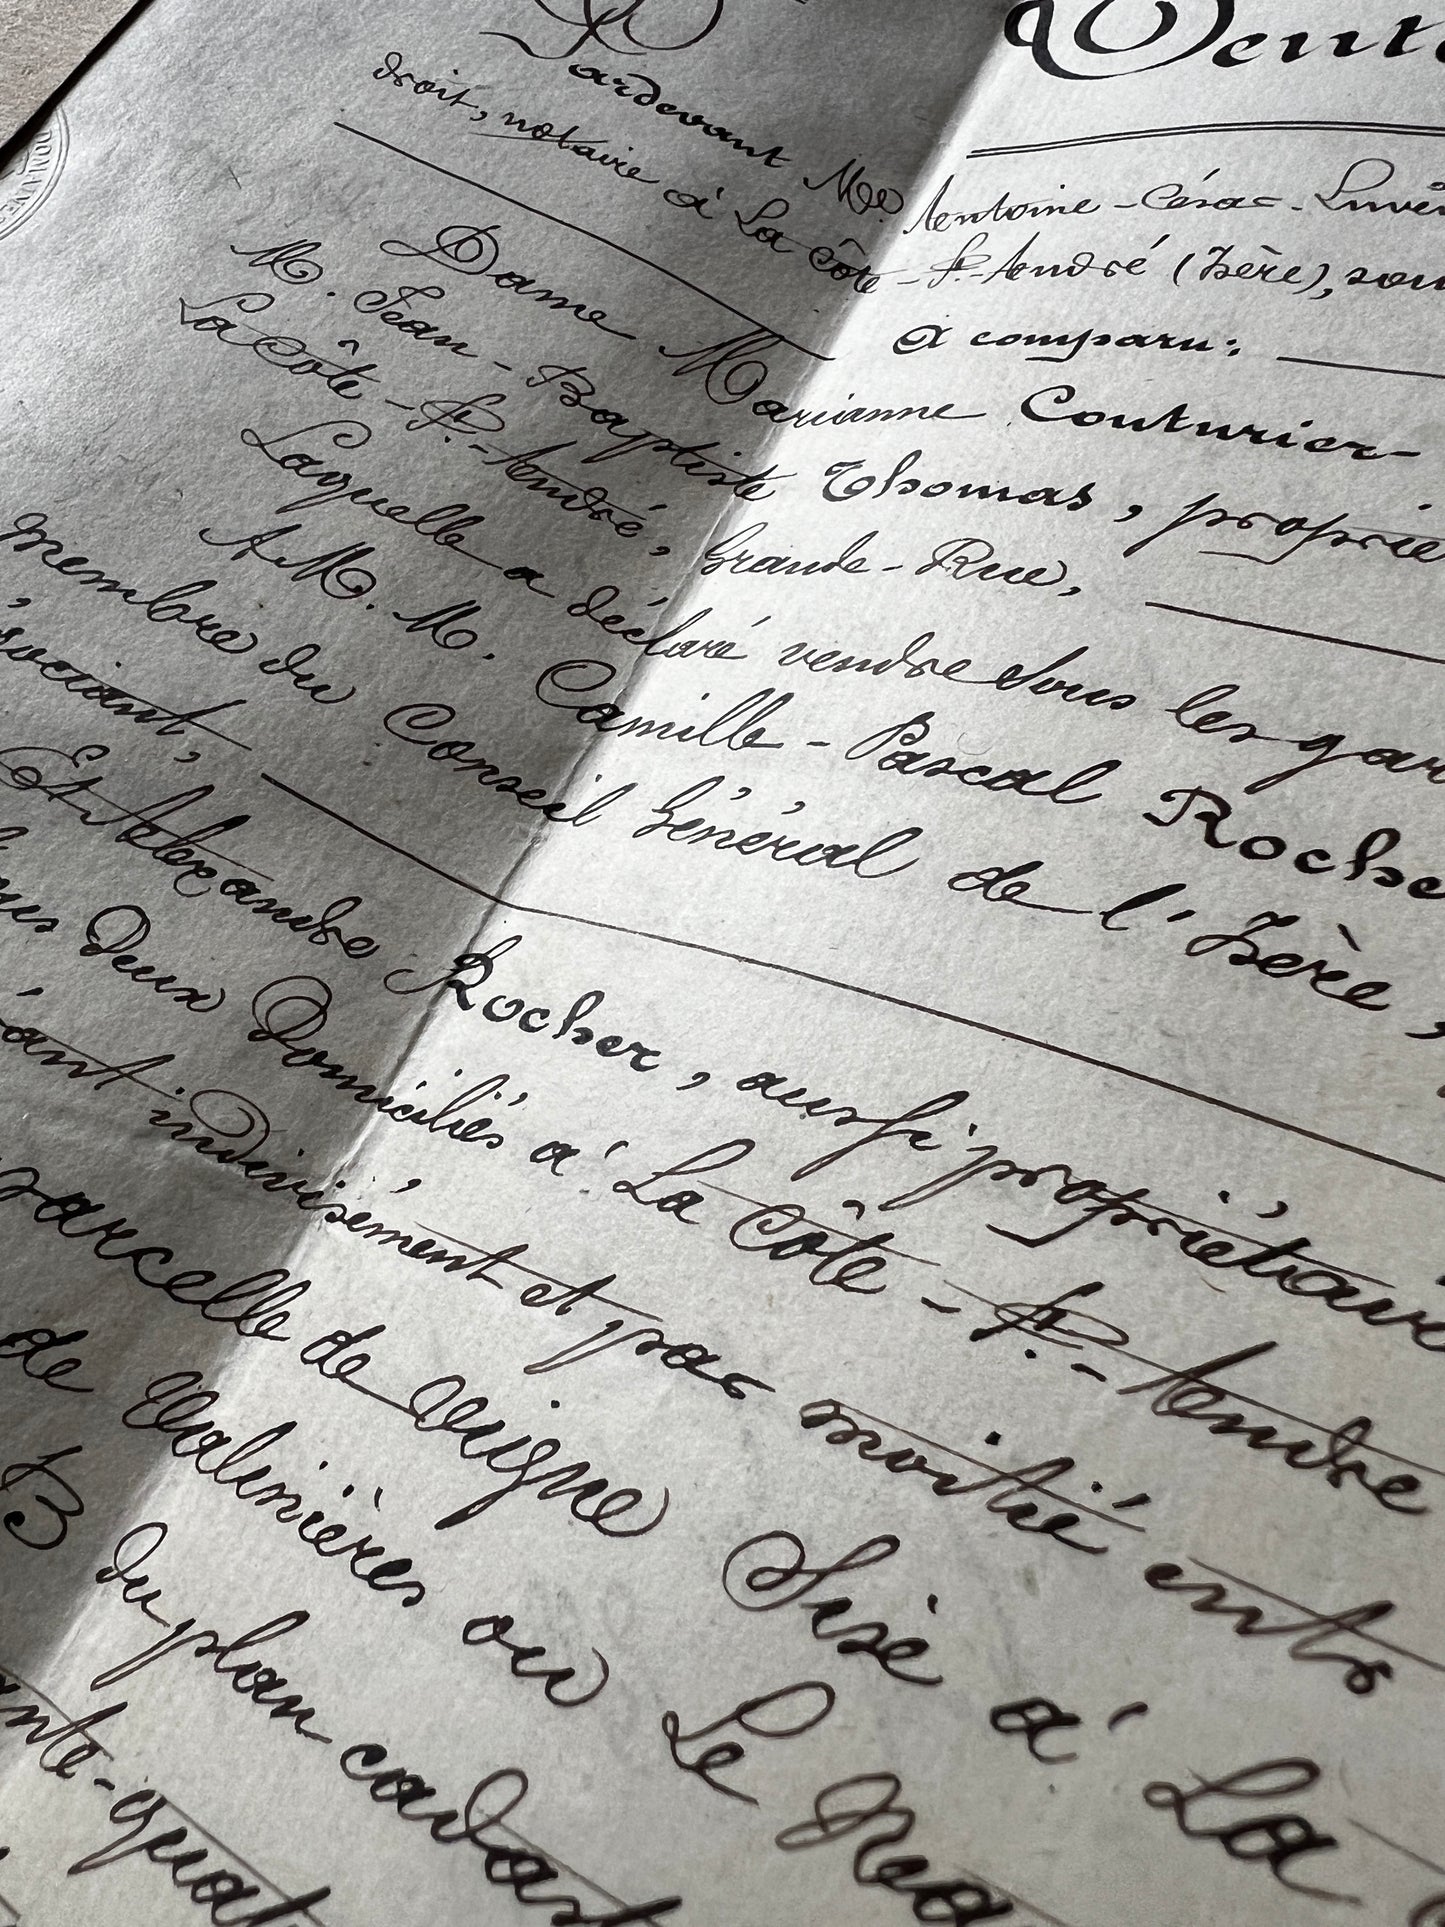 Vente
Pardevant Me. Antoine-César-
droit, notaire à La Côte-St.-André (Isère), sou
A comparu:
Dame Marianne Couturier-
M. Jean-Baptiste Thomas, proprié
La Côte-St.-André, Grande-Rue,
Laquelle a déclaré vendre sous les gar
A M. M. Camille-Pascal Roche
membre du Conseil Général de l'Isère,
sociant,
Et Alexandre Rocher, aussi propriétaire
deux domiciliés à La Côte-St.-André
indivisément et pas moitié entr
parcelle de vigne sise à La
de Valinières ou Le
B du plan cadast
ante-quat
DOMAINES